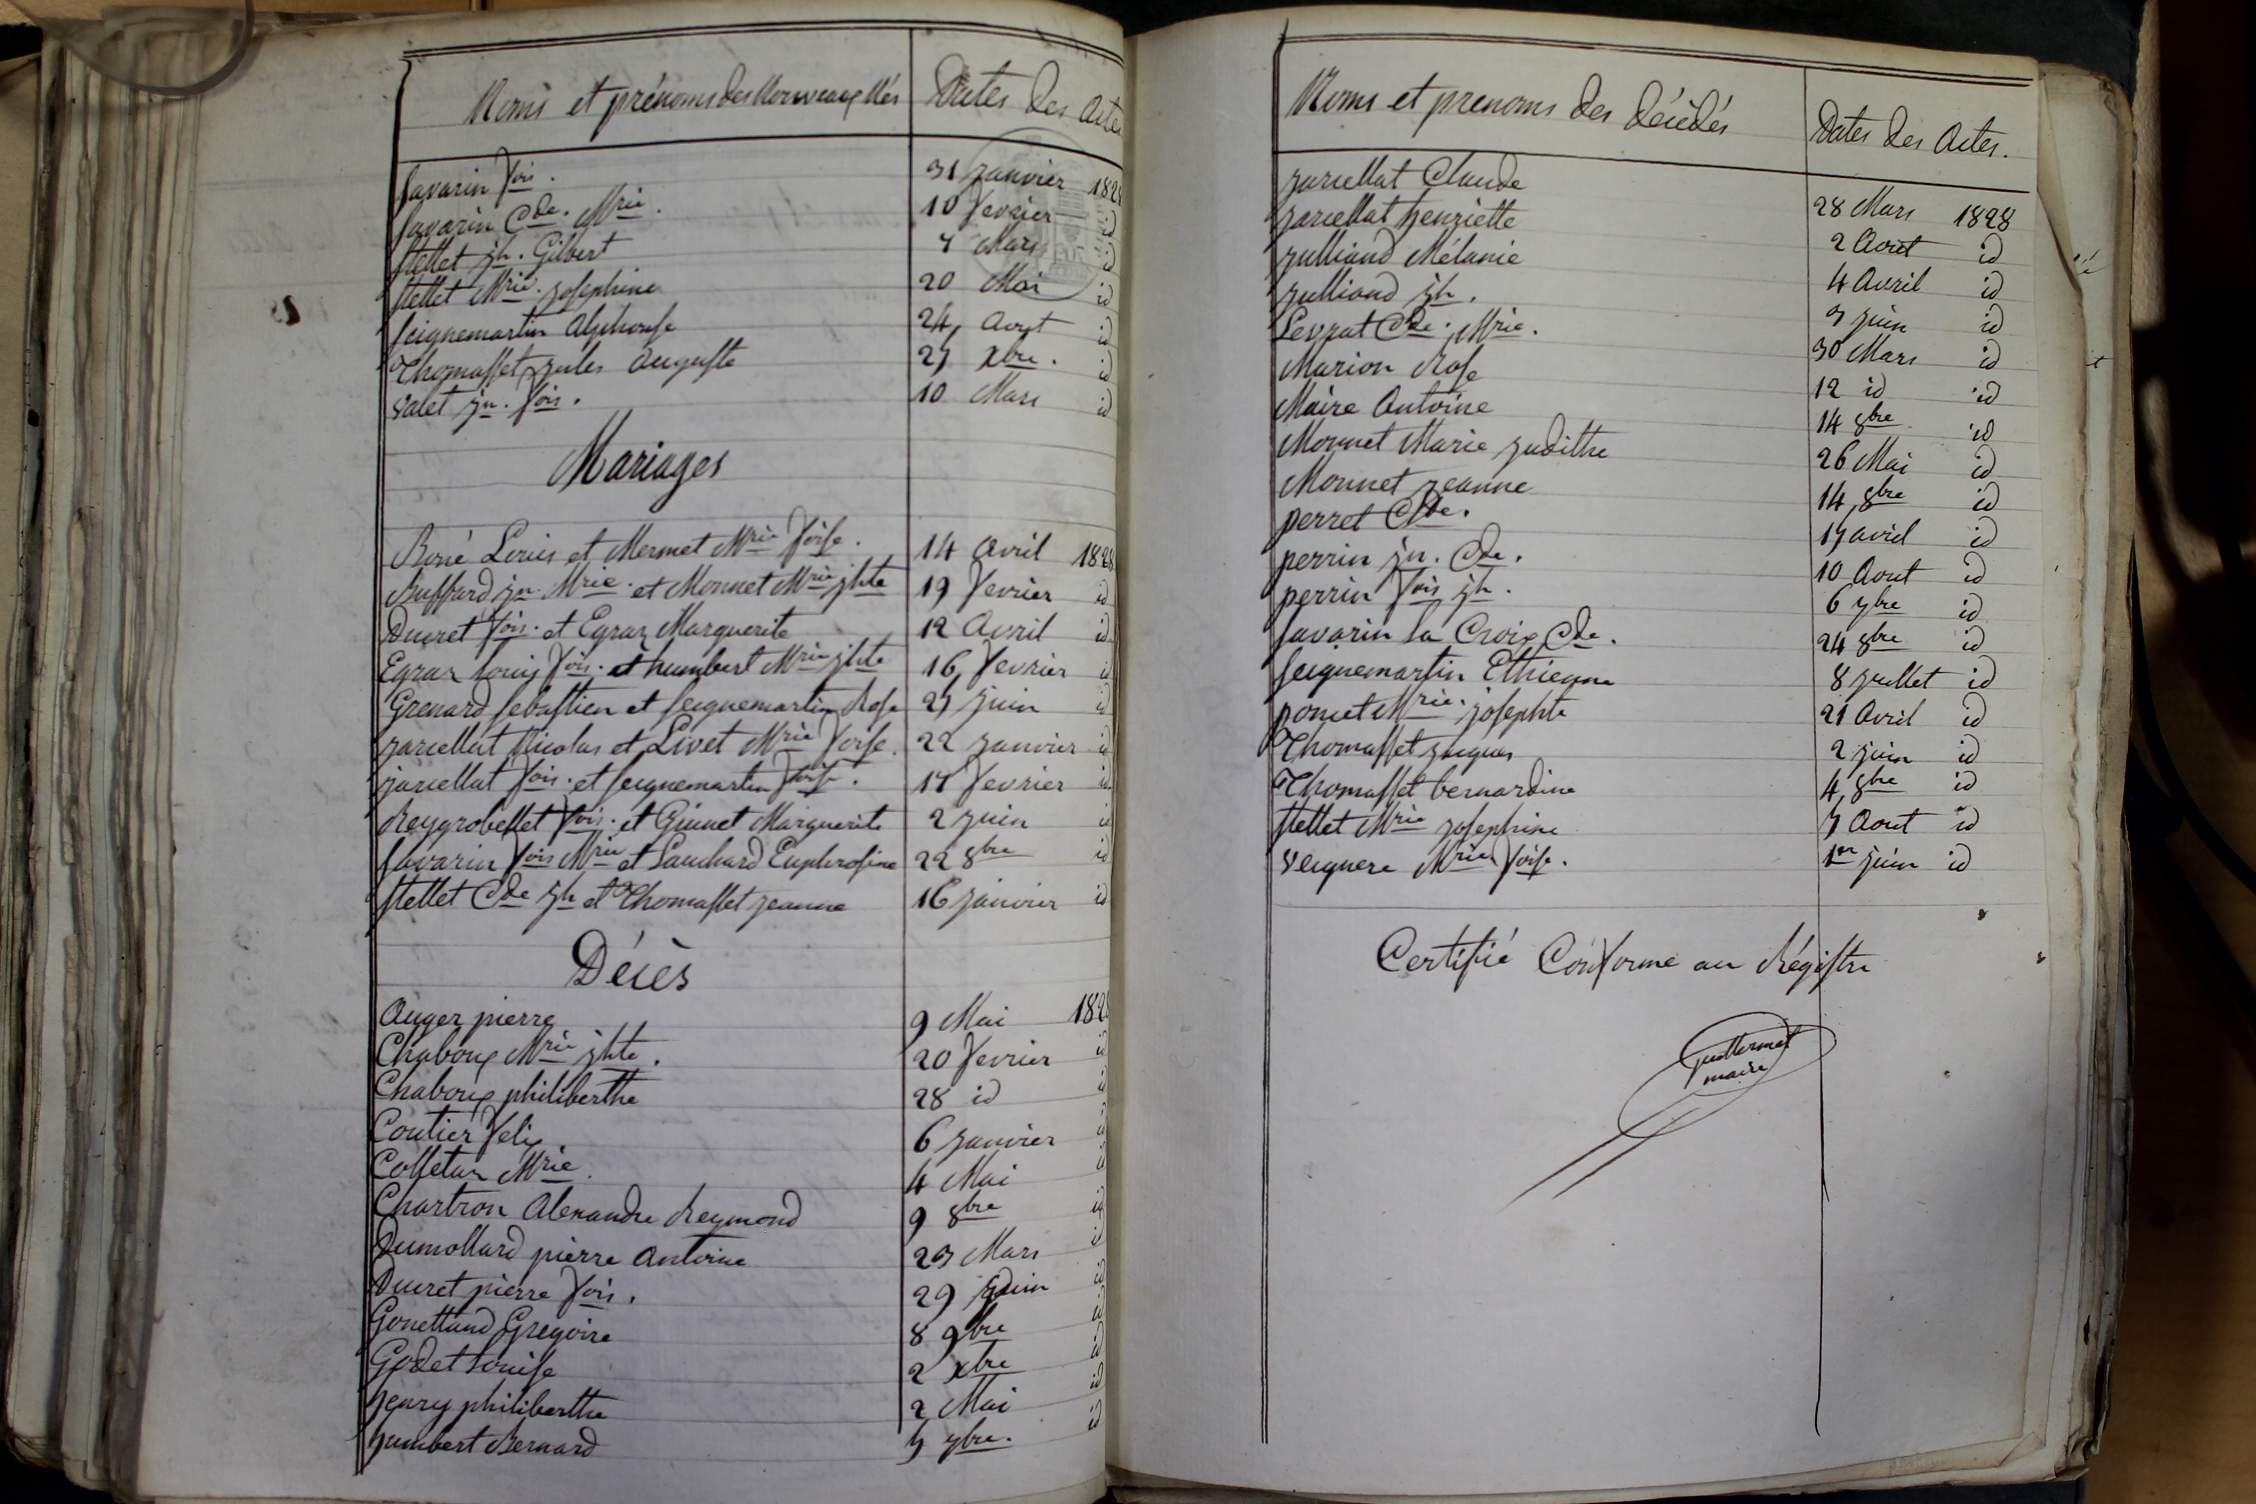 Noms et prénoms des Nouveaux Nés Dates des Actes
Savarin fois. 31 Janvier 1828
Savarin Cde. Mrie. 10 fevrier id
Stellet jh. Gilbert 7 Mars id
Stellet Mrie. Josephine 20 Mai id
Seignemartin Alphonse 24 Aout id
Thomasset Jules Auguste 27 xbre. id
Valet jn. fois. 10 Mars id
Mariages
Boné Louis et Mermet Mrie foise. 14 Avril 1828
Buffard jn. Mrie. et Monnet Mrie jhte 19 fevrier id
Ducret fois. et Egraz Marguerite 12 Avril id
Egraz Louis fois. et humbert Mrie jhte 16 fevrier id
Grenard Sebastien et Seignemartin Rose 27 juin id
Jarcellat Nicolas et Livet Mrie foise. 22 Janvier id
jarcellat fois. et Seignemartin foise. 17 fevrier id
Reygrobellet fois. et Guinet Marguerite 2 juin id
Savarin fois Mrie et Lanchard Euphrosine 22 8bre id
Stellet Cde jh et Thomasset Jeanne 16 janvier id
Décès
Auger pierre 9 Mai 1828
Chaboux Mrie jhte. 20 fevrier id
Chaboux philiberthe 28 id
Coutier felix 6 Janvier
Colletaz Mrie. 4 Mai
Chartron Alexandre Reymond 9 8bre id
Dumollard pierre Antoine 23 Mars id
Ducret pierre fois. 29 Juin id
Gonettand Gregoire 8 9bre id
Godet Louise 2 xbre id
henry philiberthe 2 Mai id
humbert Bernard 7 7bre. id
Noms et prenoms des décédés Dates des Actes.
Jarcellat Claude 28 Mars 1828
Jarcellat henriette 2 Aout id
Julliand Mélanie 4 Avril id
Julliand jh. 3 juin id
Levrat Cde. Mrie. 30 Mars id
Marion Rose 12 id id
Maire Antoine 14 8bre id
Monnet Marie Judithe 26 Mai id
Monnet Jeanne 14 8bre id
perret Cde. 17 avril id
perrin jn. Cde. 10 Aout id
perrin fois jh. 6 7bre id
Savarin la Croix Cde. 24 8bre id
Seignemartin Ethienne 8 juillet id
poncet Mrie. josephte 21 Avril id
Thomasset Jacques 2 juin id
Thomasset bernardine 4 8bre id
Stellet Mrie Josephine 7 Aout id
Veignere Mrie foise. 1er juin id
Certifié Conforme au Régistre
Guillermet
maire